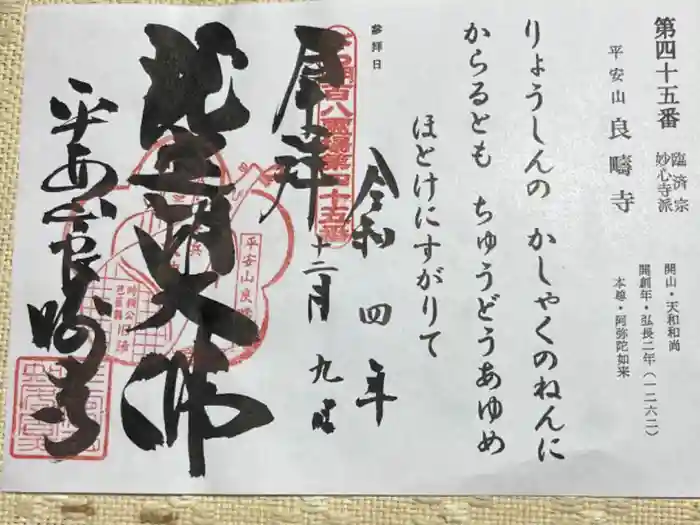 第四十五番
臨済宗
妙心寺派
平安山 良疇寺
開山・天和和尚
開創年・弘長二年(一二六二)
本尊・阿弥陀如来
りょうしんの かしゃくのねんに
からるとも ちゅうどうあゆめ
ほとけにすがりて
参拝日
令和四年
十二月九日
奉拝
大佛
平安山良疇寺
平安山良疇